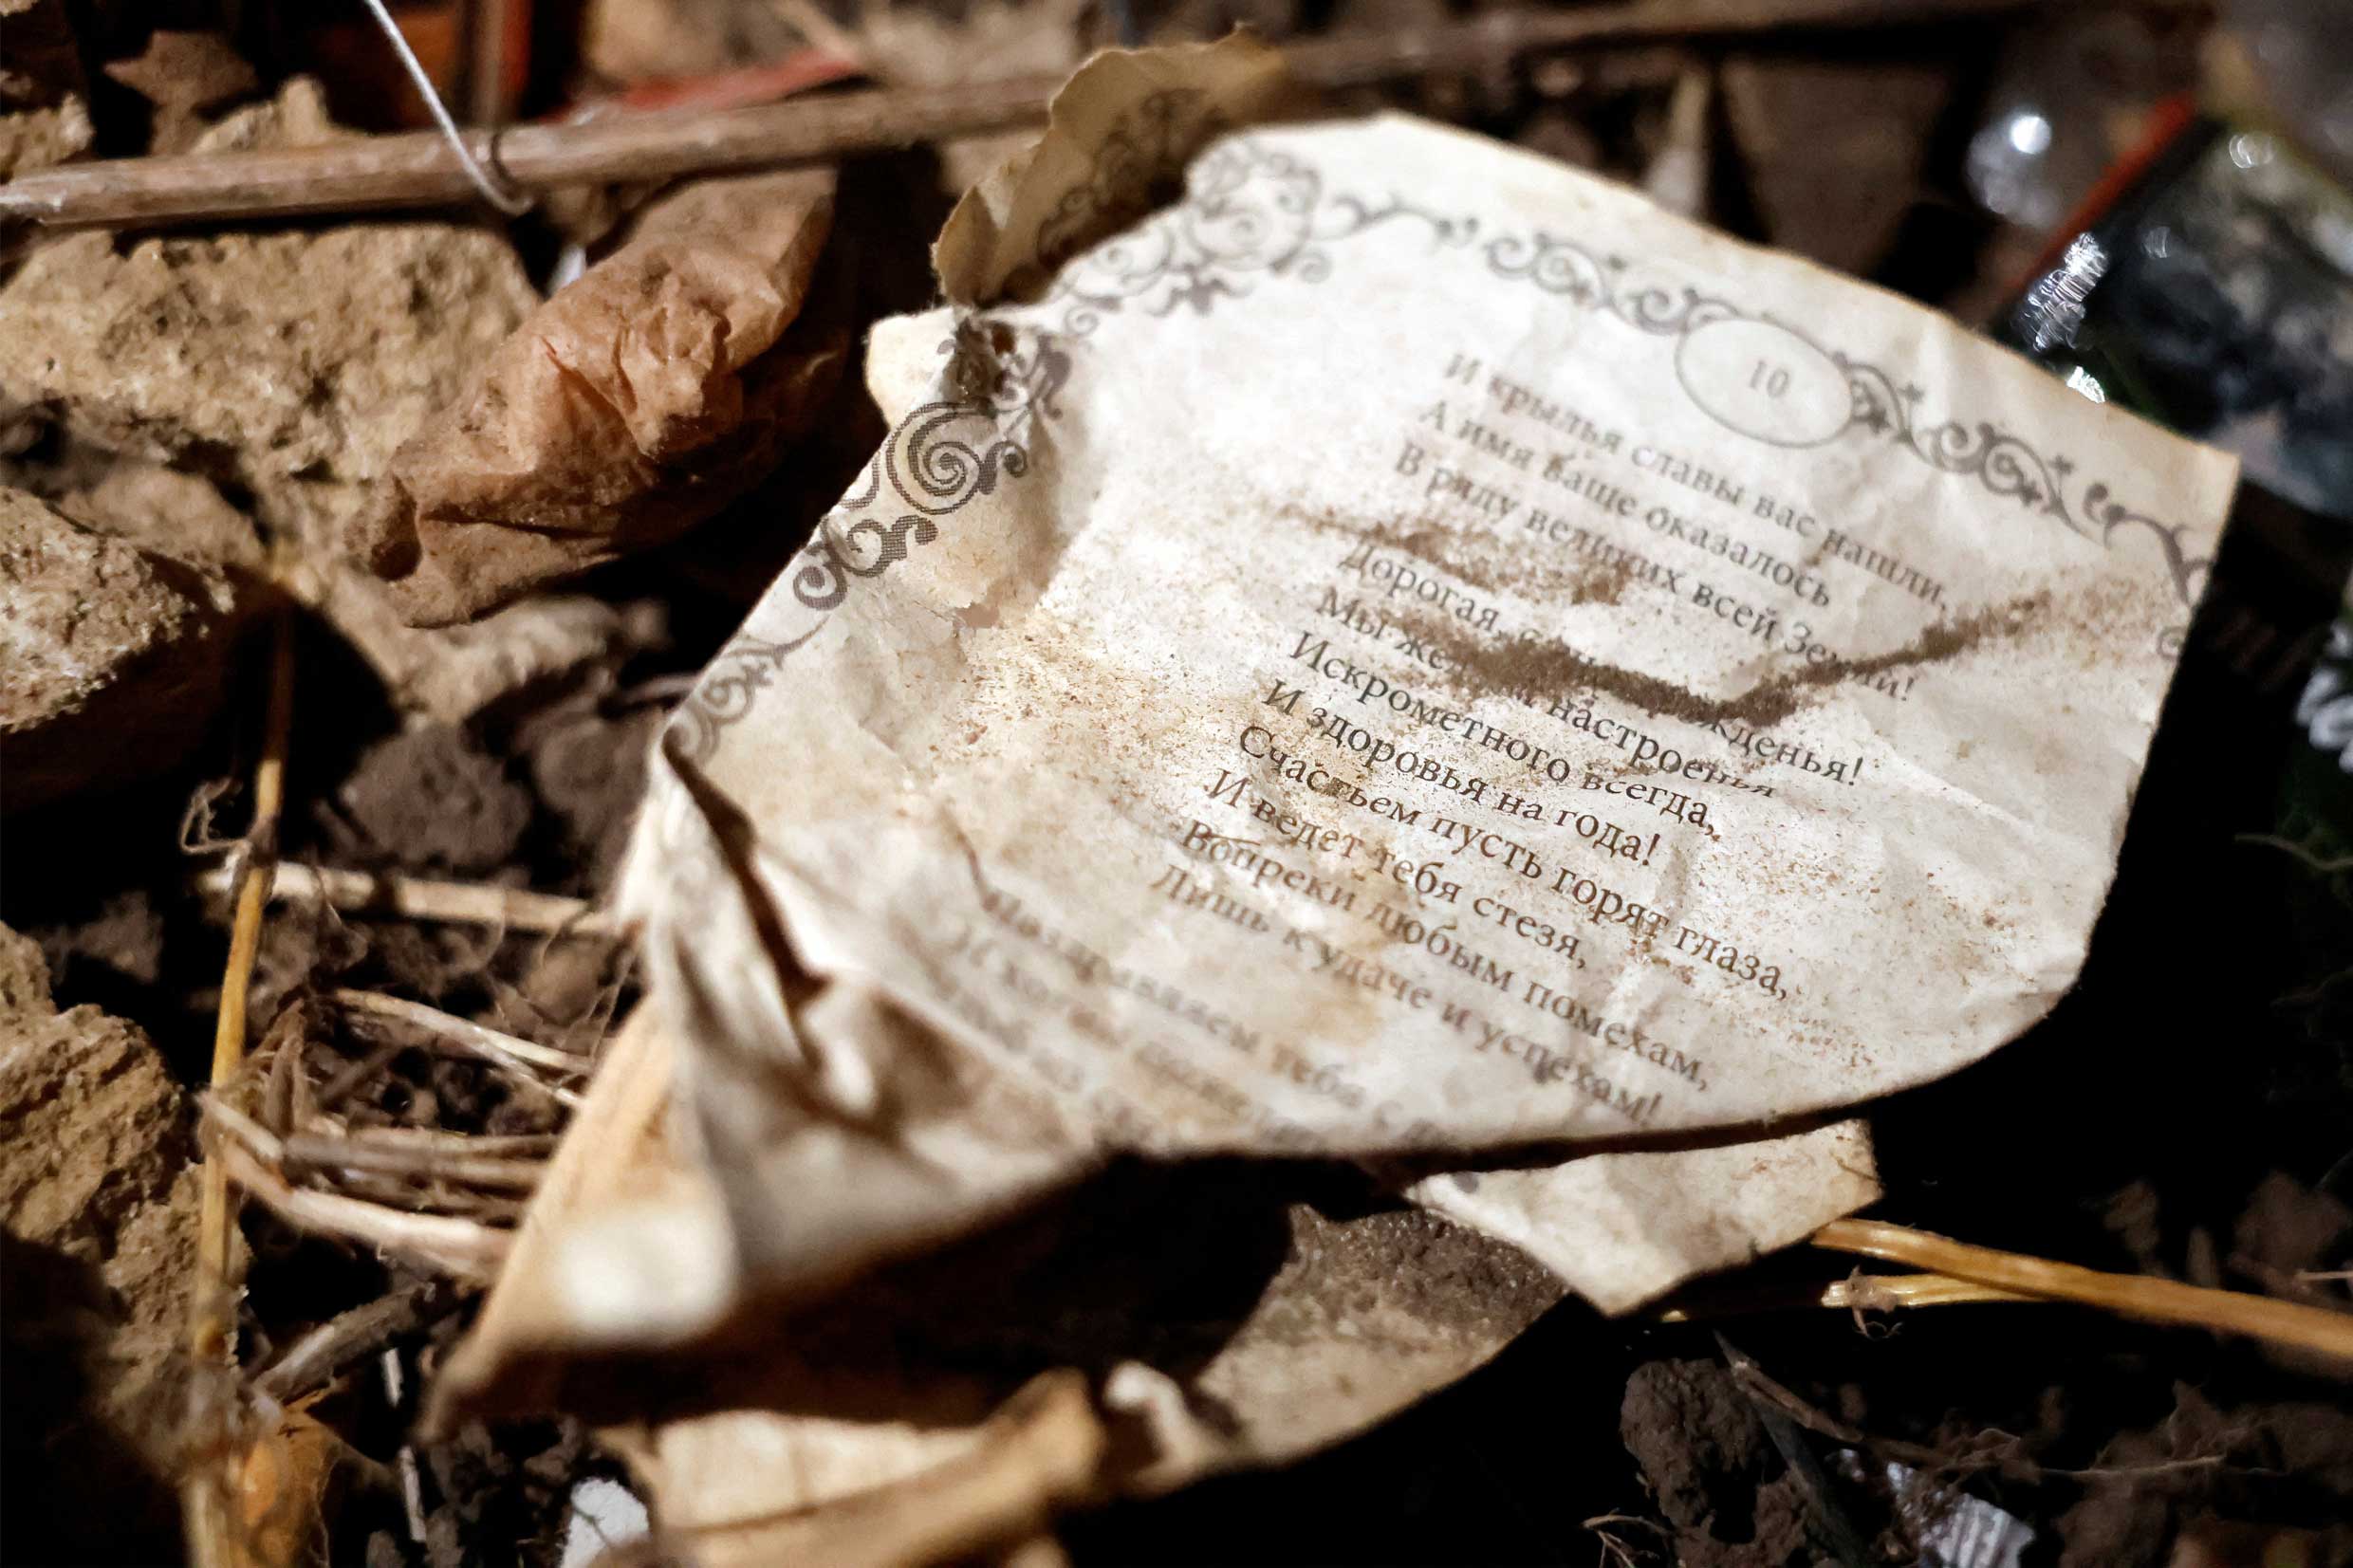 10
И крылья славы вас нашли,
А имя ваше оказалось
В ряду великих всей Земли!
Дорогая, с жденья!
Мы же настроенья
Искрометного всегда,
И здоровья на года!
Счастьем пусть горят глаза,
И ведет тебя стезя,
Вопреки любым помехам,
Лишь к удаче и успехам!
Поздравляем тебя с